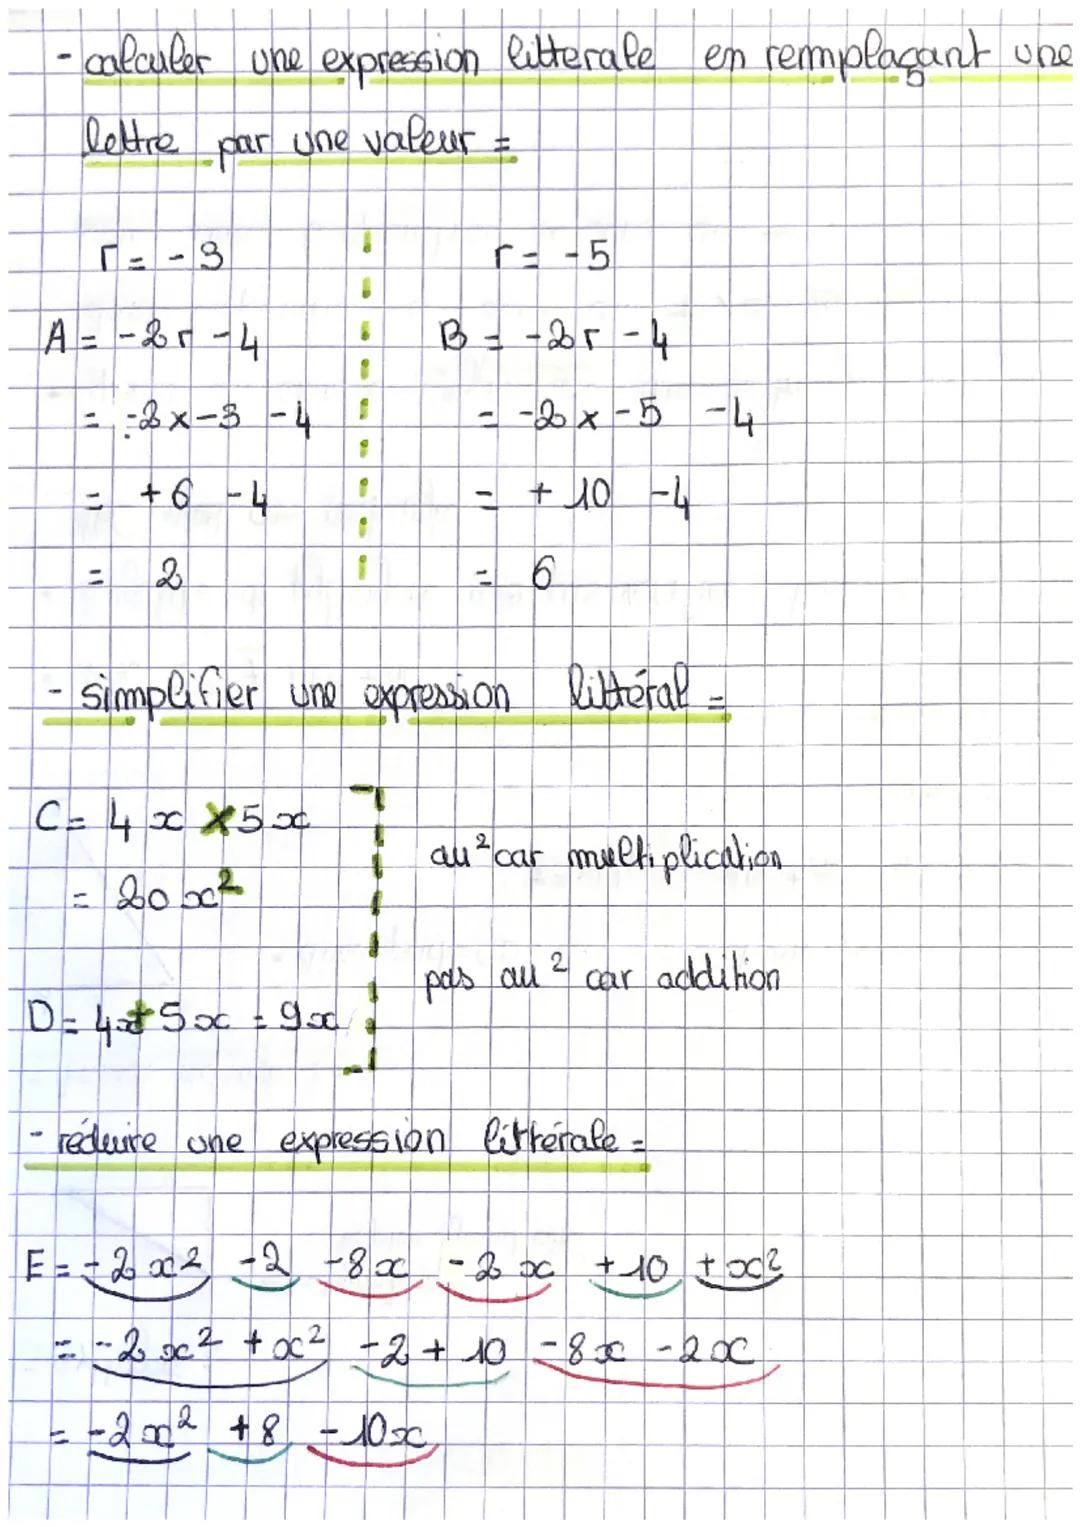 - calculer une expression litterale en remplaçant une
lettre par une valeur =
r = -3
A = -2r -4
= -2 x -3 -4
= +6 -4
= 2
r = -5
B = -2r -4
= -2 x -5 -4
= +10 -4
= 6
- simplifier une expression littéral =
C = 4x x 5x
= 20x²
au ² car multiplication
D = 4x + 5x = 9x
pas au ² car addition
- réduire une expression littérale =
E = -2x² -2 -8x -2x +10 +x²
= -2x² +x² -2 + 10 -8x -2x
= -2x² +8 -10x